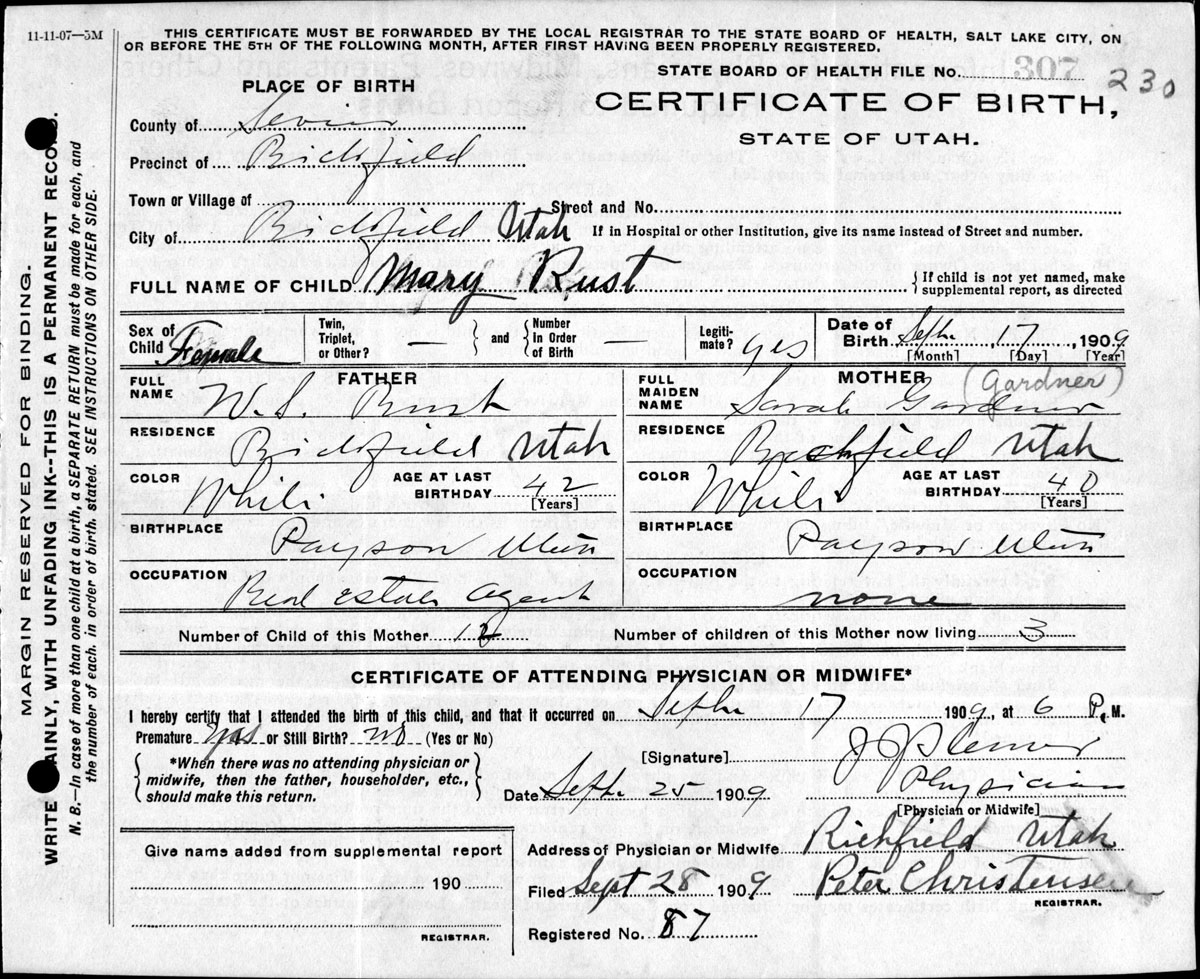 11-11-07—5M
THIS CERTIFICATE MUST BE FORWARDED BY THE LOCAL REGISTRAR TO THE STATE BOARD OF HEALTH, SALT LAKE CITY, ON
OR BEFORE THE 5TH OF THE FOLLOWING MONTH, AFTER FIRST HAVING BEEN PROPERLY REGISTERED.
STATE BOARD OF HEALTH FILE No. 307 230
PLACE OF BIRTH
CERTIFICATE OF BIRTH,
STATE OF UTAH.
County of Sevier
Precinct of Richfield
Town or Village of
Street and No.
City of Richfield Utah
If in Hospital or other Institution, give its name instead of Street and number.
FULL NAME OF CHILD Mary Rust
{If child is not yet named, make
supplemental report, as directed
Sex of Child Female
Twin, Triplet, or Other? — } and { Number In Order of Birth —
Legitimate? yes
Date of Birth Septbr 17, 1909
[Month] [Day] [Year]
FATHER
FULL NAME W. S. Rust
RESIDENCE Richfield Utah
COLOR White
AGE AT LAST BIRTHDAY 42
[Years]
BIRTHPLACE Payson Utah
OCCUPATION Real Estate Agent
MOTHER (Gardner)
FULL MAIDEN NAME Sarah Gardner
RESIDENCE Richfield Utah
COLOR White
AGE AT LAST BIRTHDAY 40
[Years]
BIRTHPLACE Payson Utah
OCCUPATION none
Number of Child of this Mother 12
Number of children of this Mother now living 3
CERTIFICATE OF ATTENDING PHYSICIAN OR MIDWIFE*
I hereby certify that I attended the birth of this child, and that it occurred on Septbr 17 1909, at 6 P. M.
Premature yes or Still Birth? no (Yes or No)
{*When there was no attending physician or
midwife, then the father, householder, etc.,
should make this return.}
[Signature]
Date Septbr 25 1909
Physician
[Physician or Midwife]
Address of Physician or Midwife Richfield Utah
Filed Sept 28 1909 Peter Christensen
REGISTRAR.
Registered No. 87
Give name added from supplemental report
190
REGISTRAR.
MARGIN RESERVED FOR BINDING.
WRITE AINLY, WITH UNFADING INK--THIS IS A PERMANENT RECO D.
N. B.—In case of more than one child at a birth, a SEPARATE RETURN must be made for each, and
the number of each. in order of birth. stated. SEE INSTRUCTIONS ON OTHER SIDE.